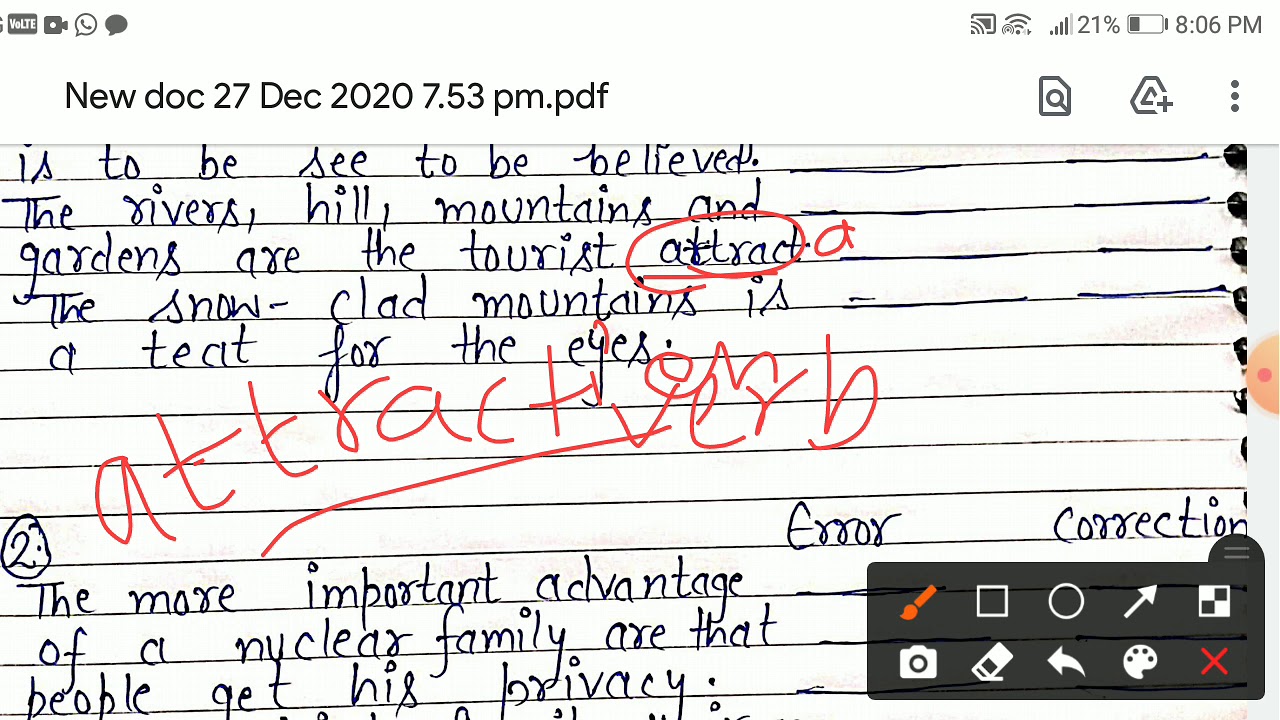 VoLTE 21% 8:06 PM
New doc 27 Dec 2020 7.53 pm.pdf
is to be see to be believed.
The rivers, hill, mountains and
gardens are the tourist attract. a
The snow- clad mountains is
a teat for the eyes.
attraction verb
2. Error Correction
The more important advantage
of a nuclear family are that
people get his privacy.